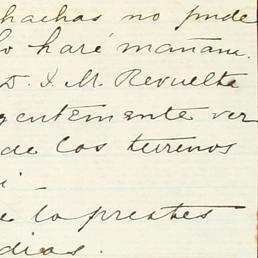 hachas no pude
lo haré mañana.
D. J. M. Revuelta
gentemente ver
de los terrenos
i -
e lo prestes
dias.